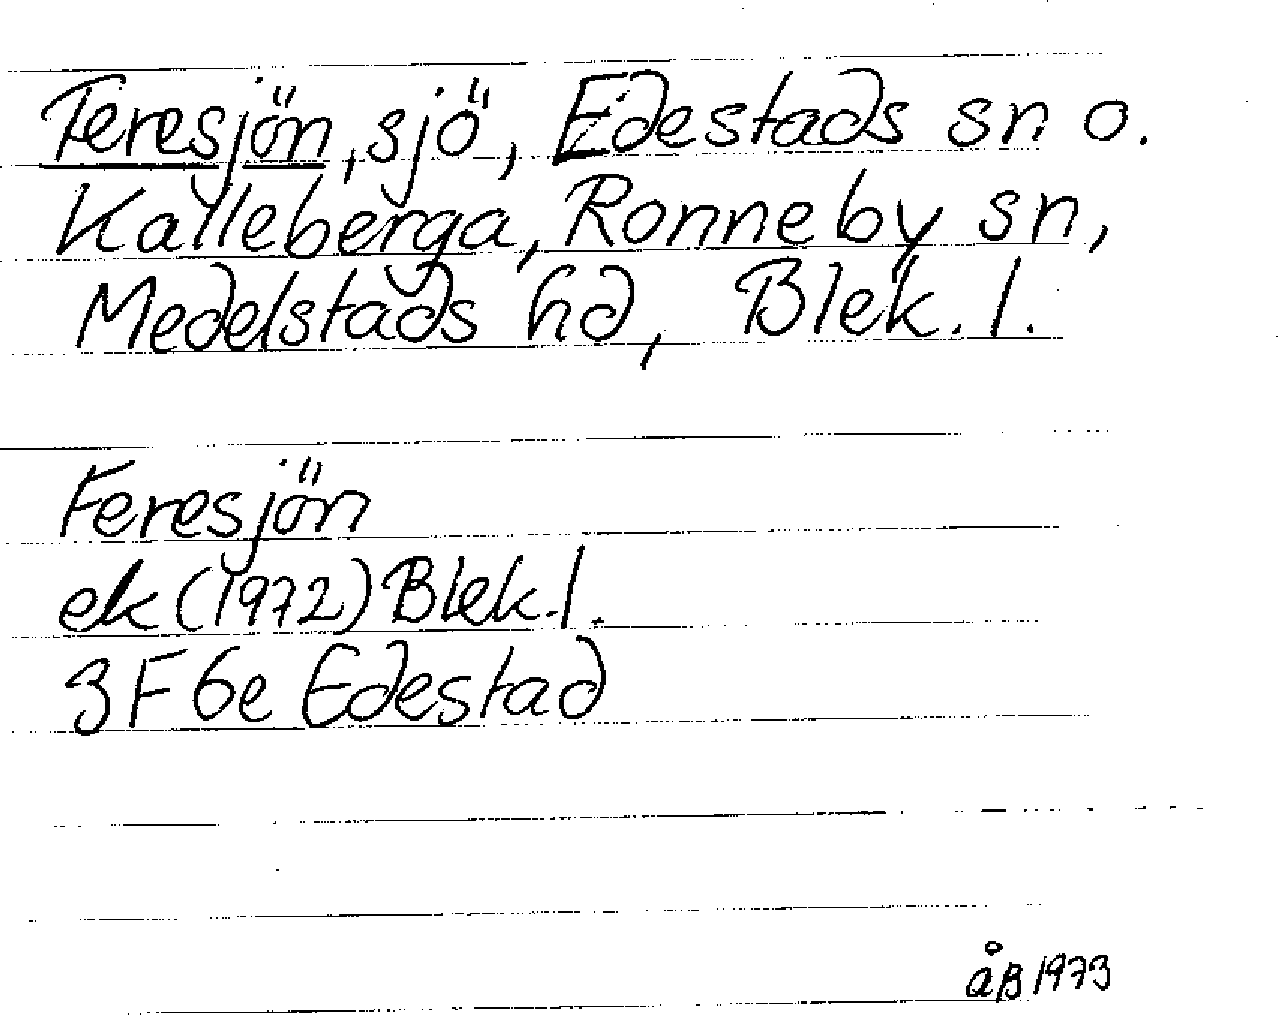 Feresjön, sjö, Edestads sn o.
Kalleberga, Ronneby sn,
Medelstads hd, Blek. l.
Feresjön
ek (1972) Blek. l.
3F 6e Edestad
åB 1973